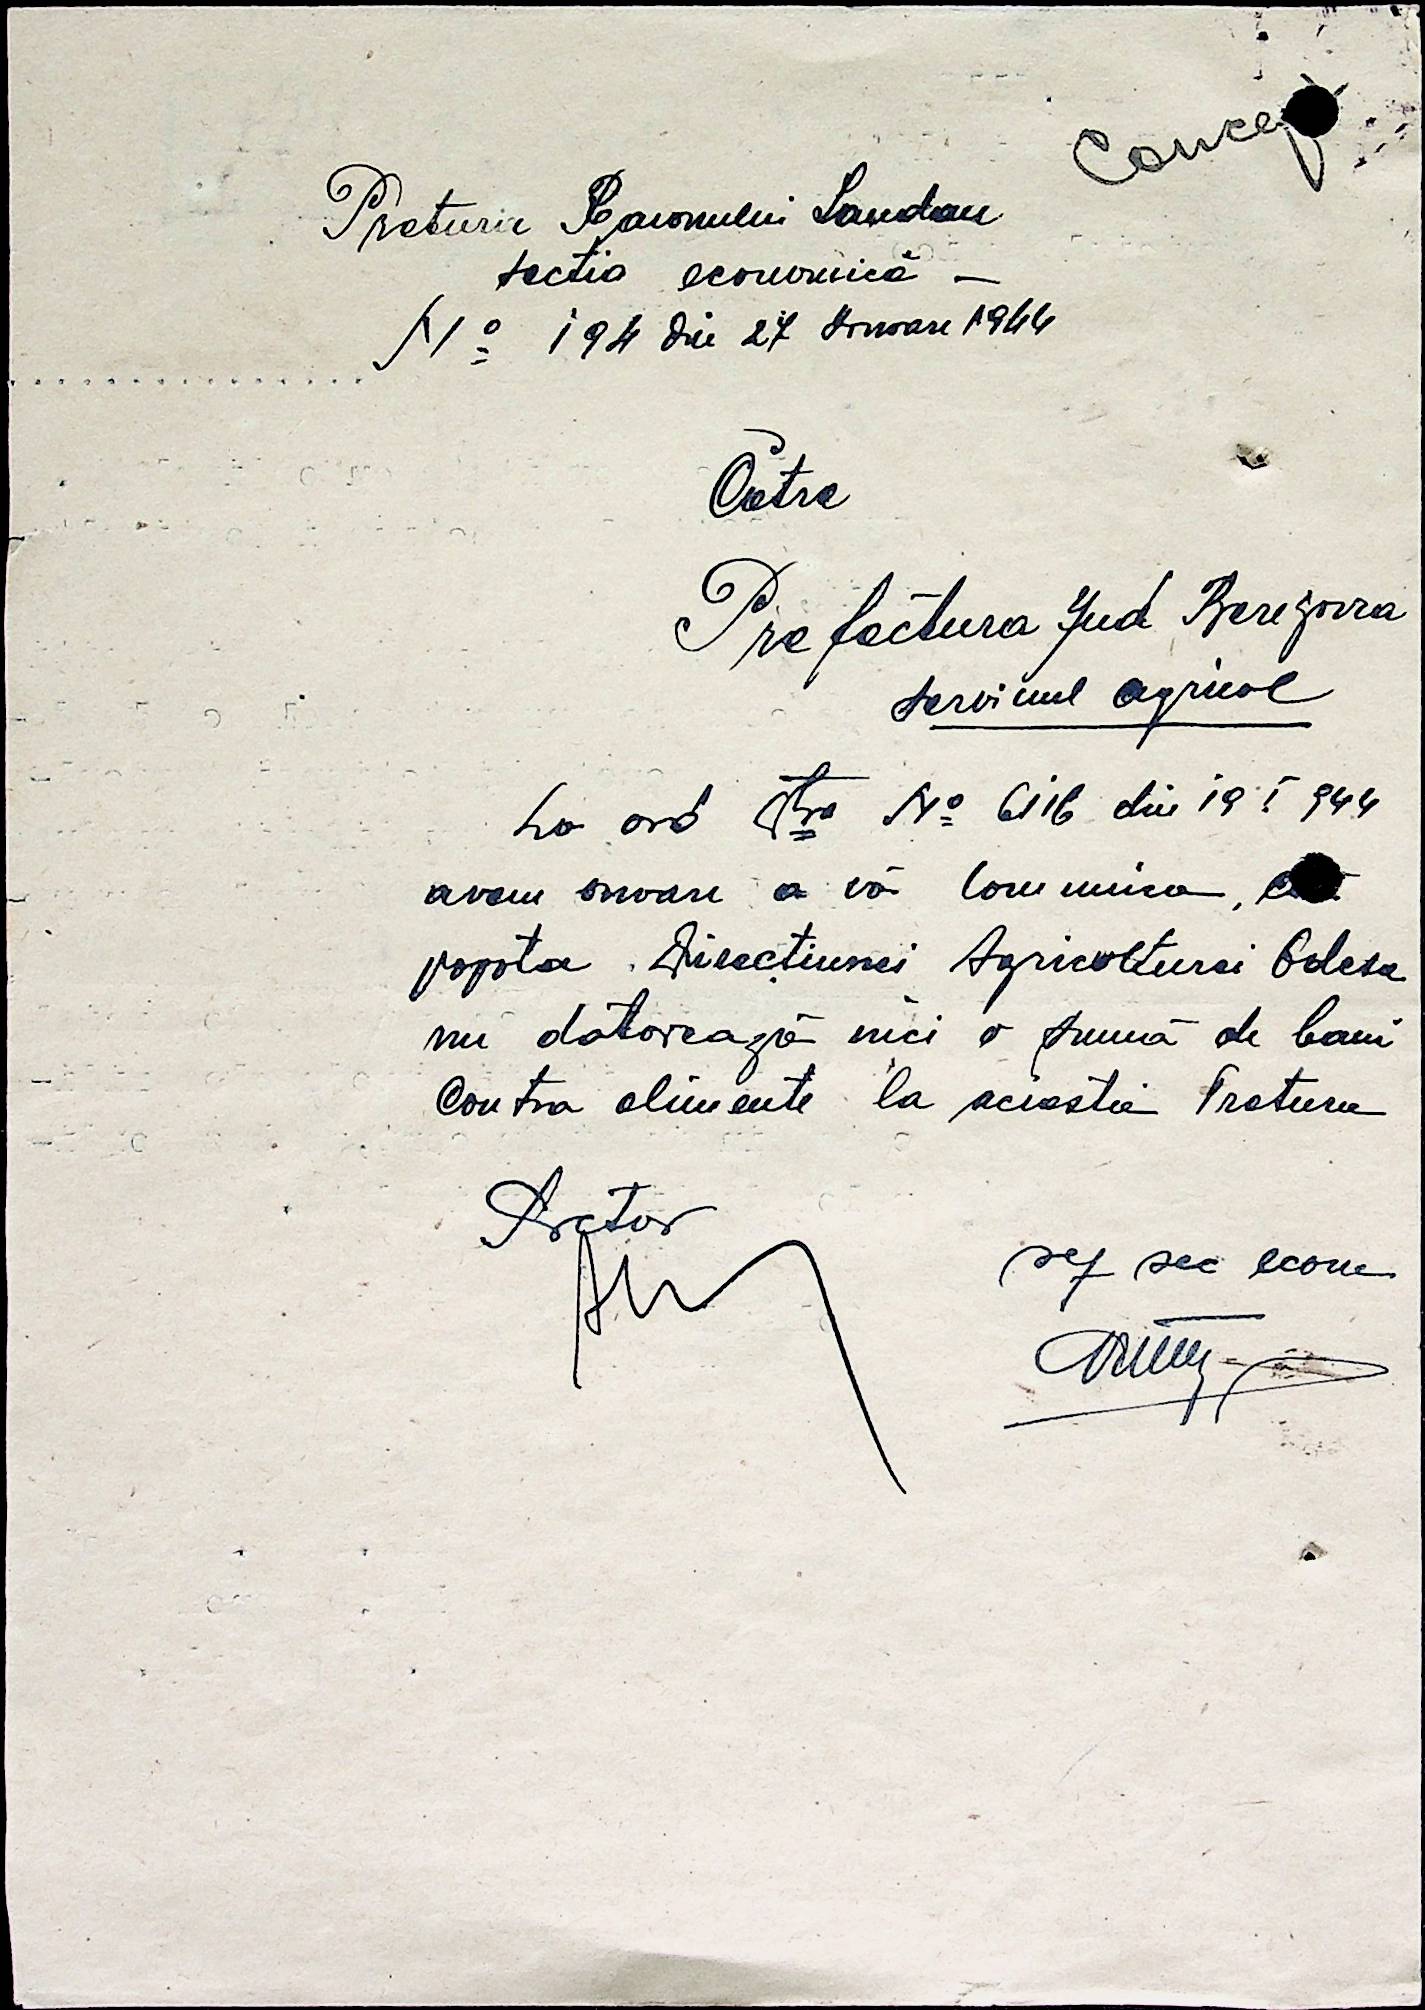 Concep
Pretura Raionului Landau
sectia economică —
No 194 din 27 Ianuarie 1944
Către
Prefectura Jud Berezovca
serviciul agricol
La ord Dvs No 6116 din 19 I 944
avem onoare a vă comunica, că
popota Direcțiunei Agriculturei Odesa
nu datorează nici o sumă de bani
contra alimente la aciastă Pretura
Pretor
sef sec econ